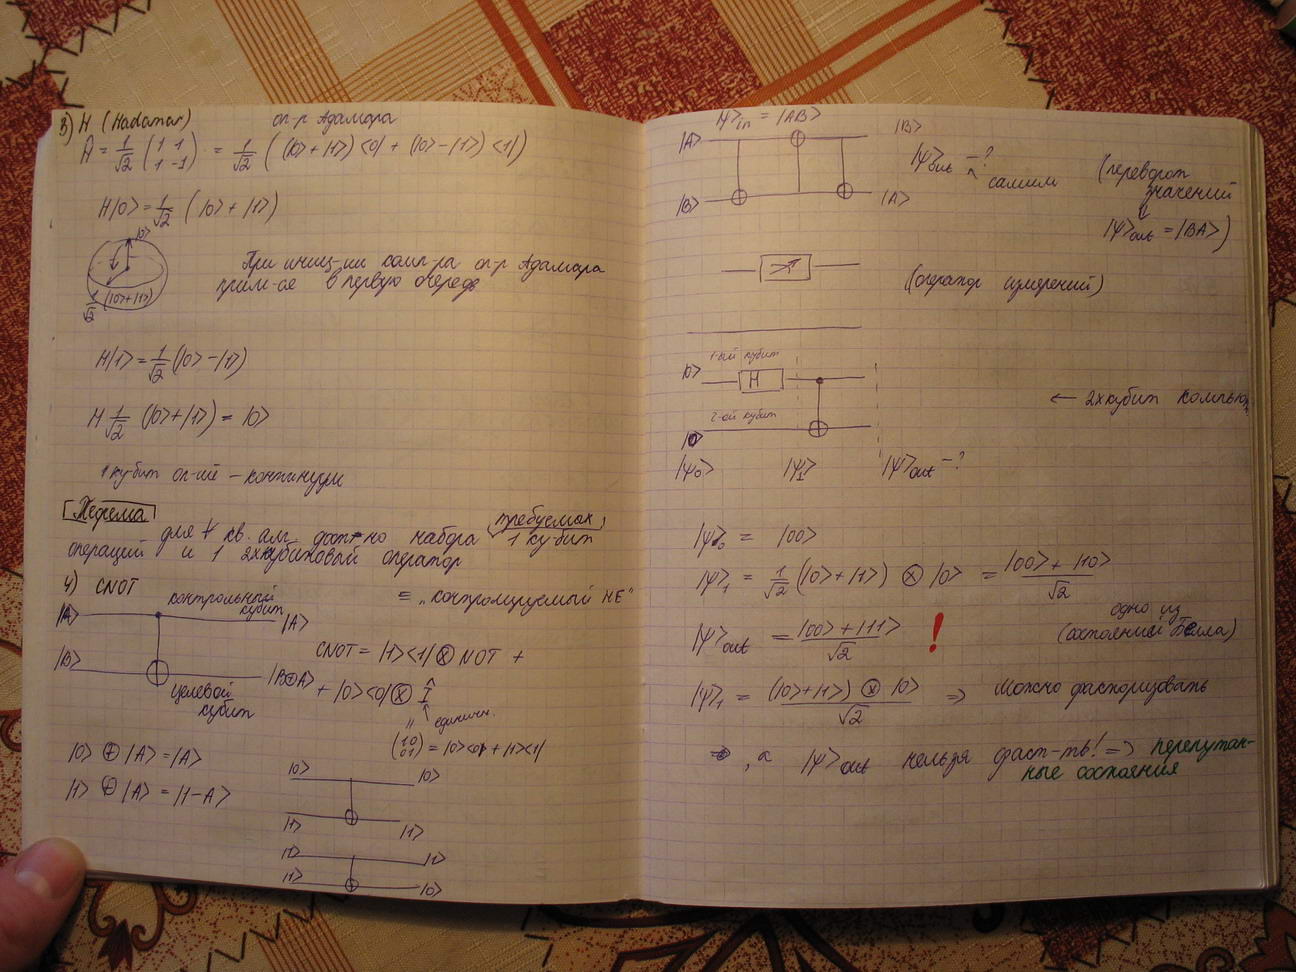 3) H (Hadamar) оп-р Адамара
Ĥ = 1/√2 (1 1 / 1 -1) = 1/√2 ((|0> + |1>) <0| + (|0> - |1>) <1|)
H|0> = 1/√2 (|0> + |1>)
|0>
При иниц-ии комп-ра оп-р Адамара
прим-ся в первую очередь
1/√2 (|0>+|1>)
H|1> = 1/√2 (|0> - |1>)
H 1/√2 (|0> + |1>) = |0>
1 ку-бит оп-ий – континуум
Теорема
для ∀ кв. алг. дост-но набора (требуемых) 1 ку-бит
операций и 1 2хкубитовый оператор
4) CNOT ≡ „контролируемый НЕ"
контрольный
кубит
|A> |A>
|B> |B⊕A>
целевой
кубит
CNOT = |1><1| ⊗ NOT +
+ |0><0| ⊗ Î
единичн.
(1 0 / 0 1) = |0><0| + |1><1|
|0> ⊕ |A> = |A>
|1> ⊕ |A> = |1-A>
|0> |0>
|1> |1>
|1> |1>
|1> |0>
|ψ>in = |AB>
|A> |B>
|B> |A>
|ψ>out – ?
самим
(переворот
значений
|ψ>out = |BA>)
(оператор измерений)
1-ый кубит
|0> H
← 2хкубит компью
2-ой кубит
|0>
|ψ0> |ψ1> |ψ>out – ?
|ψ>0 = |00>
|ψ>1 = 1/√2 (|0> + |1>) ⊗ |0> = (|00> + |10>)/√2
|ψ>out = (|00> + |11>)/√2 !
одно из
(состояний Белла)
|ψ>1 = ((|0> + |1>) ⊗ |0>)/√2 => можно факторизовать
, а |ψ>out нельзя факт-ть! => перепутан-
ные состояния